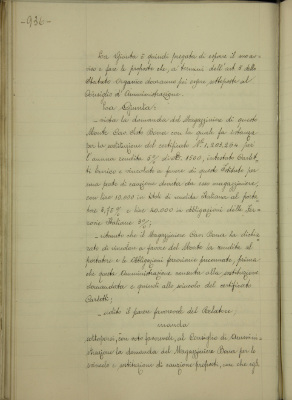 -936-
La Giunta è quindi pregata di esprimere il suo avviso
e fare le proposte che, a termini dell'art. 5 dello
Statuto Organico dovranno poi essere sottoposte al
Consiglio di Amministrazione.
La Giunta:
vista la domanda del Magazziniere di questo
Monte Cav. Aldo Bona con la quale fa istanza
per la sostituzione del certificato N° 1.201.294 per
l'annua rendita 5% di L. 1500, intestato
e vincolato a favore di questo Istituto per
una parte di cauzione dovuta da esso magazziniere,
con lire 10.000 in titoli di rendita Italiana al porta-
tore 3,50% e lire 20.000 in obbligazioni delle Fer-
rovie Italiane 3%;
ritenuto che il Magazziniere Cav. Bona ha dichia-
rato di vincolare a favore del Monte la rendita al
portatore e le obbligazioni ferroviarie, prima
che questa Amministrazione consenta alla sostituzione
domandata e quindi allo svincolo del certificato
udito il parere favorevole del Relatore;
manda
sottoporsi, con voto favorevole, al Consiglio di Ammini-
strazione la domanda del Magazziniere Bona per lo
svincolo e sostituzione di cauzione, con che egli